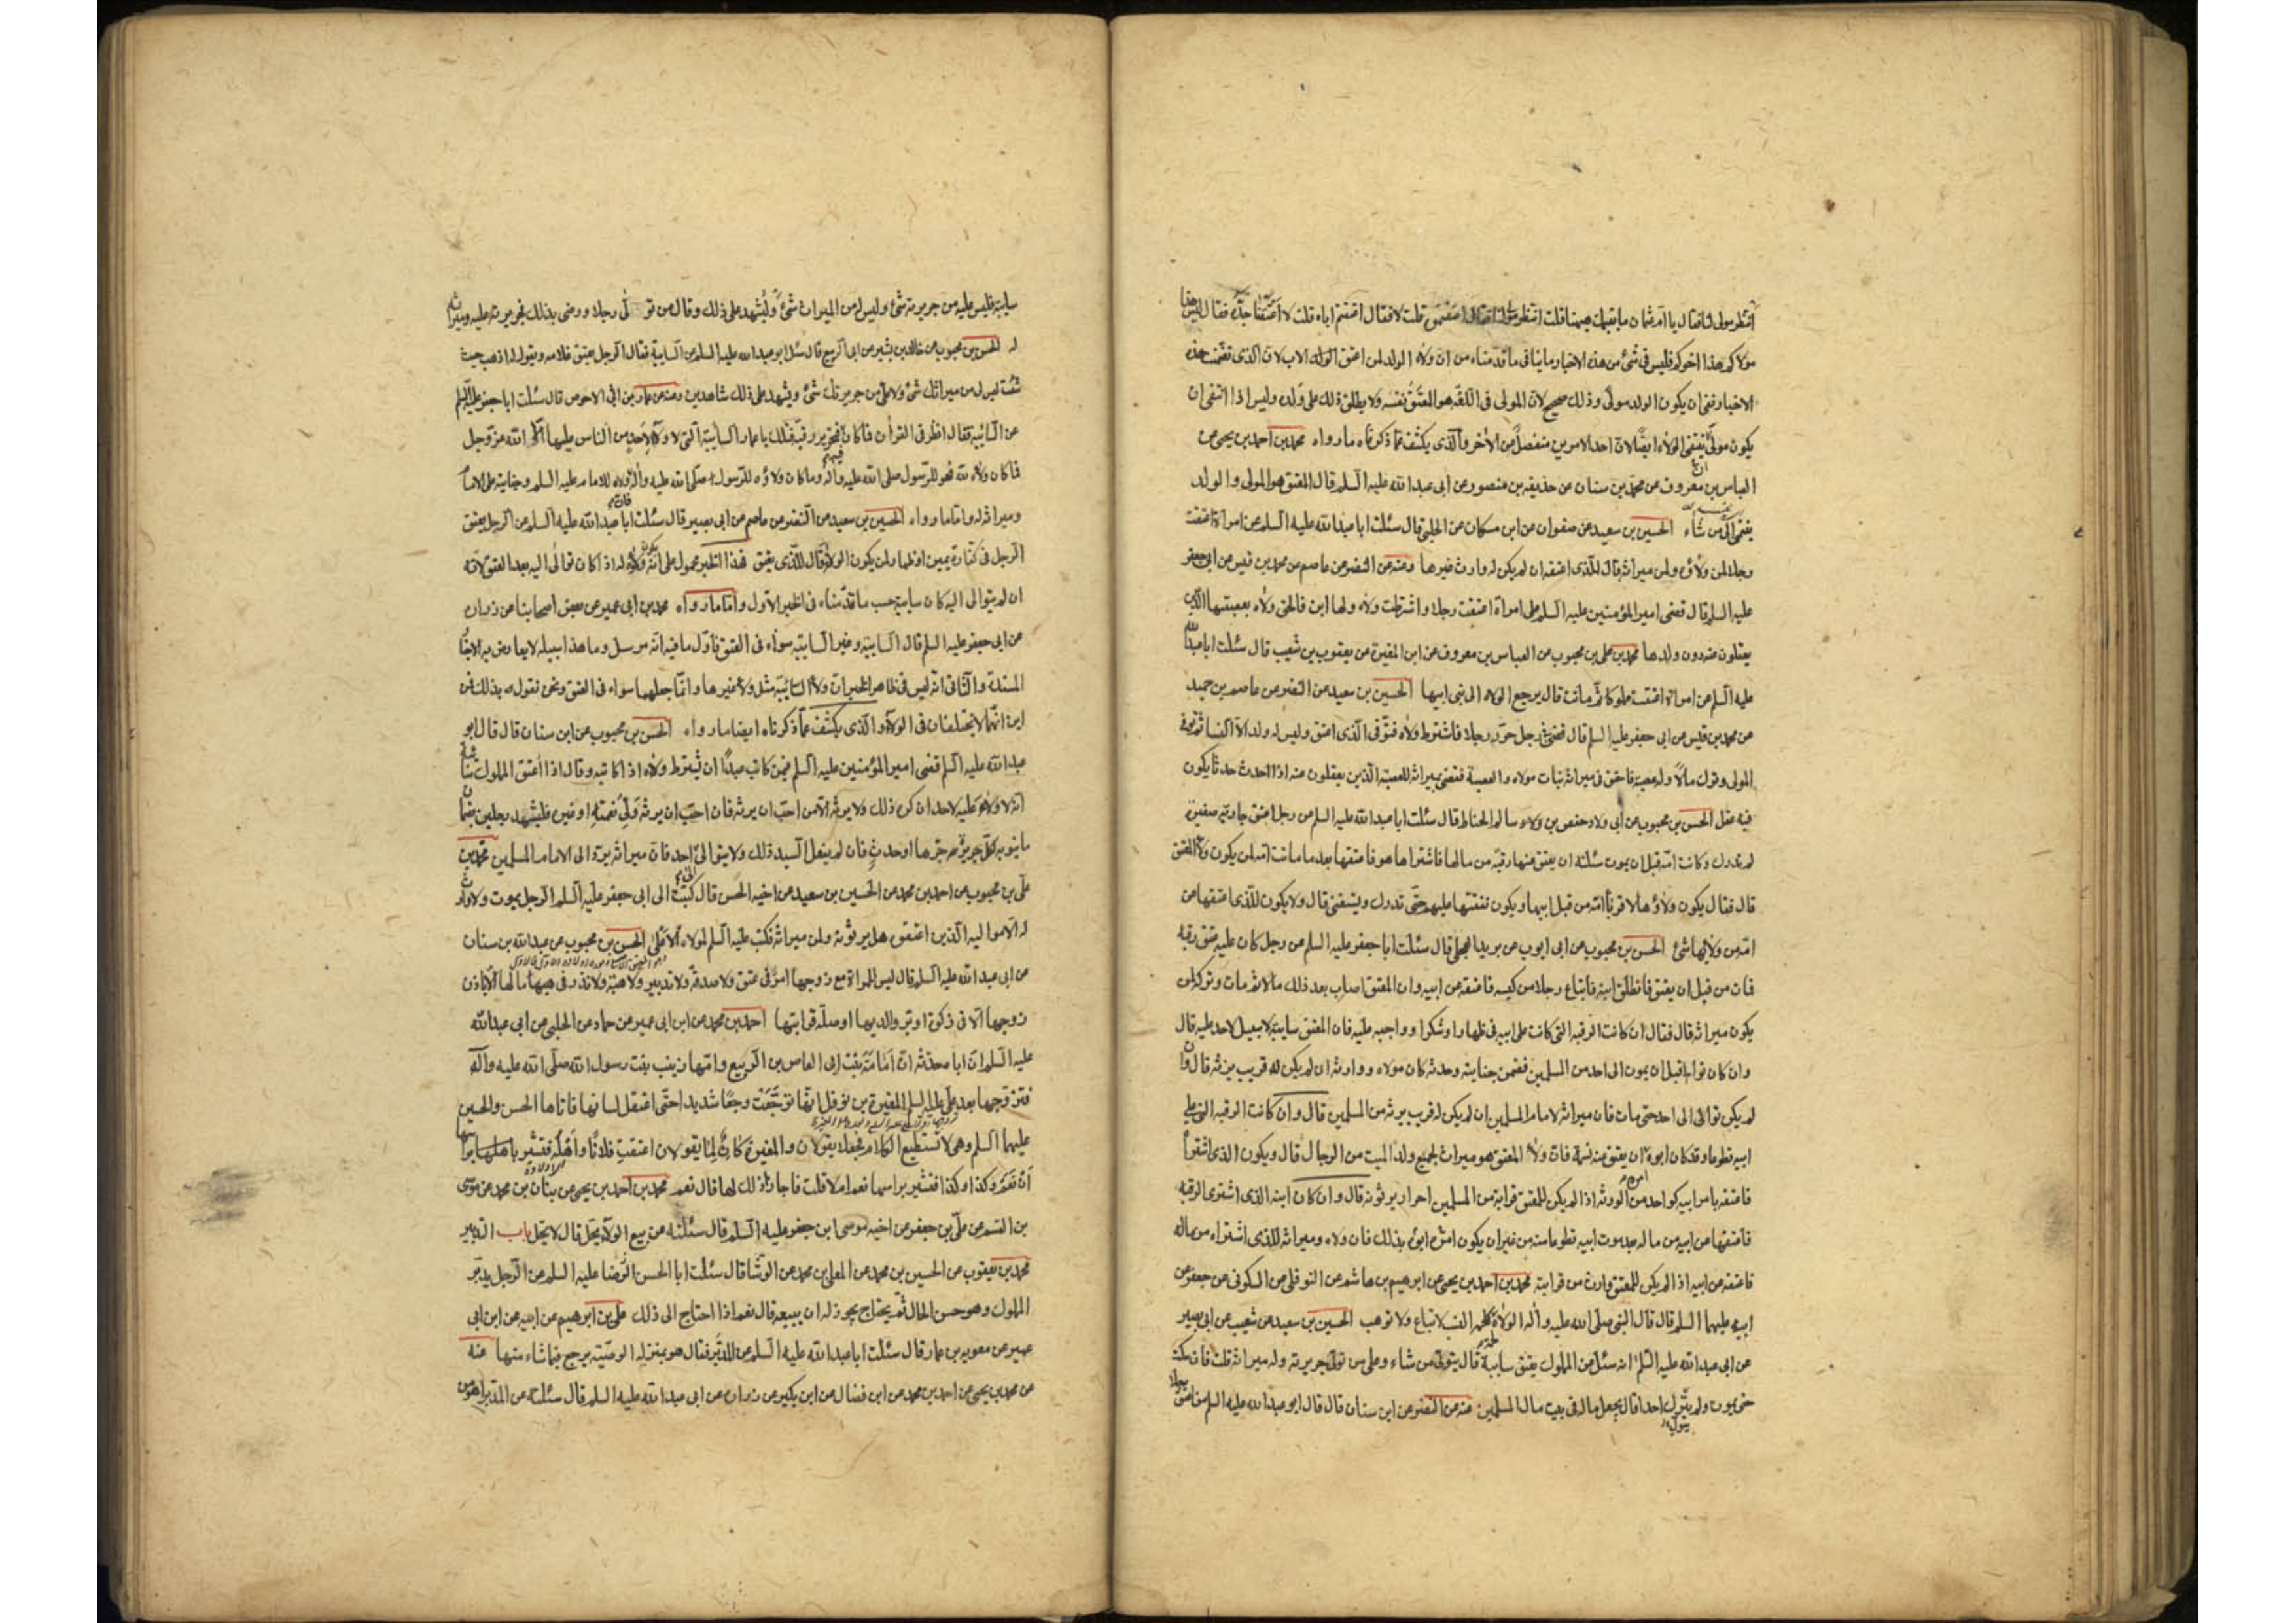 انتظر مولى لنا فقال يا ام عثمان ما يقيمك هيهنا قلت انتظر مولى لنا فقال اعتقتموه قلت لا فقال اعتقتم اباه قلت لا اعتقنا جده فقال ليس هذا
مولاكم هذا اخوكم فليس في شئ من هذه الاخبار ما ينافي ما قدمناه من ان ولاء الولد لمن اعتق الوالد الاب لان الذي تضمنت هذه
الاخبار نفي ان يكون الولد مولى وذلك صحيح لان المولى في اللغة هو المعتق نفسه ولا يطلق ذلك على ولده وليس اذا انتفى ان
يكون مولى ينتفي الولاء ايضا لان احد الامرين منفصل من الاخر والذي يكشف عما ذكرناه ما رواه محمد بن احمد بن يحيى عن
العباس بن معروف عن محمد بن سنان عن حذيفه بن منصور عن ابي عبد الله عليه السلم قال المعتق هو المولى والولد
ينتمي الى من شاء الحسين بن سعيد عن صفوان عن ابن مسكان عن الحلبي قال سئلت ابا عبد الله عليه السلم عن امراة اعتقت
رجلا لمن ولاؤه ولمن ميراثه قال للذي اعتقه ان لم يكن له وارث غيرها وعنه عن النضر عن عاصم عن محمد بن قيس عن ابي جعفر
عليه السلم قال قضى امير المؤمنين عليه السلم على امراة اعتقت رجلا واشترطت ولاءه ولها ابن فالحق ولاءه بعصبتها الذين
يعقلون عنه دون ولدها محمد بن علي بن محبوب عن العباس بن معروف عن ابن المغيرة عن يعقوب بن شعيب قال سئلت ابا عبد الله
عليه السلم عن امراة اعتقت مملوكا ثم ماتت قال يرجع الولاء الى بني ابيها الحسين بن سعيد عن النضر عن عاصم بن حميد
عن محمد بن قيس عن ابي جعفر عليه السلم قال قضى في رجل حرر رجلا فاشترط ولاءه فتوفي الذي اعتق وليس له ولد الا النسا ثم توفي
المولى وترك مالا وله عصبة فاحتق في ميراثه بنات مولاه والعصبة فقضى بميراثه للعصبة الذين يعقلون عنه اذا احدث حدثا يكون
فيه عقل الحسن بن محبوب عن ابي ولاد حفص بن سالم الحناط قال سئلت ابا عبد الله عليه السلم عن رجل اعتق جارية صغيرة
لم تدرك وكانت امه قبل ان يموت سئلته ان يعتق عنها رقبة من مالها فاشتراها هو فاعتقها بعد ما ماتت امه لمن يكون ولاء المعتق
قال فقال يكون ولاؤها لاقرباء امه من قبل ابيها ويكون نفقتها عليهم حتى تدرك وتستغني قال ولا يكون للذي اعتقها عن
امه من ولائها شئ الحسن بن محبوب عن ابي ايوب عن بريد العجلي قال سئلت ابا جعفر عليه السلم عن رجل كان عليه عتق رقبه
فمات من قبل ان يعتق فانطلق ابنه فابتاع رجلا من كيسه فاعتقه عن ابيه وان المعتق اصاب بعد ذلك مالا ثم مات وتركه لمن
يكون ميراثه قال فقال ان كانت الرقبه التي كانت على ابيه في ظهار او شكر او واجبه عليه فان المعتق سايبة لا سبيل لاحد عليه قال
وان كان توالى قبل ان يموت الى احد من المسلمين فضمن جنايته وحدثه كان مولاه ووارثه ان لم يكن له قريب يرثه قال وان
لم يكن توالى الى احد حتى مات فان ميراثه لامام المسلمين ان لم يكن له قريب يرثه من المسلمين قال وان كانت الرقبه التي على
ابيه تطوعا وقد كان ابوه امره ان يعتق عنه نسمة فان ولاء المعتق هو ميراث لجميع ولد الميت من الرجال قال ويكون الذي اشتراه
فاعتقه بامر ابيه كواحد من الورثه اذا لم يكن للمعتق قرابة من المسلمين احرار يرثونه قال وان كان ابنه الذي اشترى الرقبه
فاعتقها عن ابيه من ماله بعد موت ابيه تطوعا منه من غير ان يكون امره ابوه بذلك فان ولاءه وميراثه للذي اشتراه من ماله
فاعتقه عن ابيه اذا لم يكن للمعتق وارث من قرابته محمد بن احمد بن يحيى عن ابرهيم بن هاشم عن النوفلي عن السكوني عن جعفر عن
ابيه عليهما السلم قال قال النبي صلى الله عليه واله الولاء لحمة كلحمة النسب لا تباع ولا توهب الحسين بن سعيد عن شعيب عن ابي بصير
عن ابي عبد الله عليه السلم انه سئل عن المملوك يعتق سايبة قال يتولى من شاء وعلى من تولى جريرته وله ميراثه قلت فان سكت
حتى يموت ولم يتول احدا قال يجعل ماله في بيت مال المسلمين عنه عن النضر عن ابن سنان قال قال ابو عبد الله عليه السلم من اعتق رجلا
سايبة فليس عليه من جريرته شئ وليس له من الميراث شئ وليشهد على ذلك وقال من تولى رجلا ورضي بذلك فجريرته عليه وميراثه
له الحسن بن محبوب عن خالد بن بشير عن ابي الربيع قال سئل ابو عبد الله عليه السلم عن السايبة فقال الرجل يعتق غلامه ويقول له اذهب حيث
شئت ليس لي من ميراثك شئ ولا علي من جريرتك شئ ويشهد على ذلك شاهدين وعنه عن عمار بن ابي الاحوص قال سئلت ابا جعفر عليه السلم
عن السائبة فقال انظر في القرأن فما كان فيه فتحرير رقبة فتلك يا عمار السايبة التي لا ولاء لاحد من الناس عليها الا الله عز وجل
فما كان ولاءه لله فهو للرسول صلى الله عليه واله وما كان ولاؤه للرسول صلى الله عليه واله فان ولاءه للامام عليه السلم وجنايته على الامام
وميراثه له واما ما رواه الحسين بن سعيد عن النضر عن عاصم عن ابي بصير قال سئلت ابا عبد الله عليه السلم عن الرجل يعتق
الرجل في كفارة يمين او ظهار لمن يكون الولاء قال للذي يعتق فهذا الخبر محمول على انه يكون ولاؤه له اذا كان توالى اليه بعد العتق لانه
ان لم يتوالى اليه كان سايبة حسب ما قدمناه في الخبر الاول واما ما رواه محمد بن ابي عمير عن بعض اصحابنا عن زراره
عن ابي جعفر عليه السلم قال السايبة وغير السايبه سواء في العتق فاول ما فيه انه مرسل وما هذا سبيله لا يعارض به الاخبار
المسندة والثاني انه ليس في ظاهر الخبر ان ولاء السائبة مثل ولاء غيرها وانما جعلهما سواء في العتق ونحن نقول به ذلك فمن
اين انهما لا يختلفان في الولاء والذي يكشف عما ذكرناه ايضا ما رواه الحسن بن محبوب عن ابن سنان قال قال ابو
عبد الله عليه السلم قضى امير المؤمنين عليه السلم فيمن كاتب عبدا ان يشترط ولاءه اذا كاتبه وقال اذا اعتق المملوك سائبة
انه لا ولاء عليه لاحد ان كره ذلك ولا يرثه الا من احب ان يرثه فان احب ان يرثه ولي نعمته او غيره فليشهد رجلين بضمان
ما ينوبه كل جريرة جرها او حدث فان لم يفعل السيد ذلك ولا يتوالى الى احد فان ميراثه يرد الى الامام المسلمين محمد بن
علي بن محبوب عن احمد بن محمد عن الحسين بن سعيد عن اخيه الحسن قال كتبت الى ابي جعفر عليه السلم الرجل يموت ولا وارث
له الا مواليه الذين اعتقوه هل يرثونه ولمن ميراثه فكتب عليه السلم لمولاه الاعلى الحسن بن محبوب عن عبد الله بن سنان
عن ابي عبد الله عليه السلم قال ليس للمراة مع زوجها امر في عتق ولا صدقة ولا تدبير ولا هبة ولا نذر في مالها الا باذن
زوجها الا في زكوة او بر والديها او صلة قرابتها احمد بن محمد عن ابن ابي عمير عن حماد عن الحلبي عن ابي عبد الله
عليه السلم ان اباه حدثه ان امامة بنت ابي العاص بن الربيع وامها زينب بنت رسول الله صلى الله عليه وآله
فتزوجها بعد علي عليه السلم المغيرة بن نوفل انها توجعت وجعا شديدا حتى اعتقل لسانها فاتاها الحسن والحسين
عليهما السلم وهي لا تستطيع الكلام فجعلا يقولان والمغيرة كاره لما يقولان اعتقت فلانا واهله فتشير براسها
ان نعم وكذا وكذا فتشير براسها نعم ام لا قلت فاجازا ذلك لها قال نعم محمد بن احمد بن يحيى عن بنان بن محمد عن موسى
بن القسم عن علي بن جعفر عن اخيه موسى ابن جعفر عليه السلم قال سئلته عن بيع الولاء يحل قال لا يحل باب التدبير
محمد بن يعقوب عن الحسين بن محمد عن المعلى بن محمد عن الوشا قال سئلت ابا الحسن الرضا عليه السلم عن الرجل يدبر
المملوك وهو حسن الحال ثم يحتاج يجوز له ان يبيعه قال نعم اذا احتاج الى ذلك علي بن ابرهيم عن ابيه عن ابن ابي
عمير عن معويه بن عمار قال سئلت ابا عبد الله عليه السلم عن المدبر فقال هو بمنزله الوصية يرجع فيما شاء منها عنه
عن محمد بن يحيى عن احمد بن محمد عن ابن فضال عن ابن بكير عن زراره عن ابي عبد الله عليه السلم قال سئلته عن المدبر اهو من